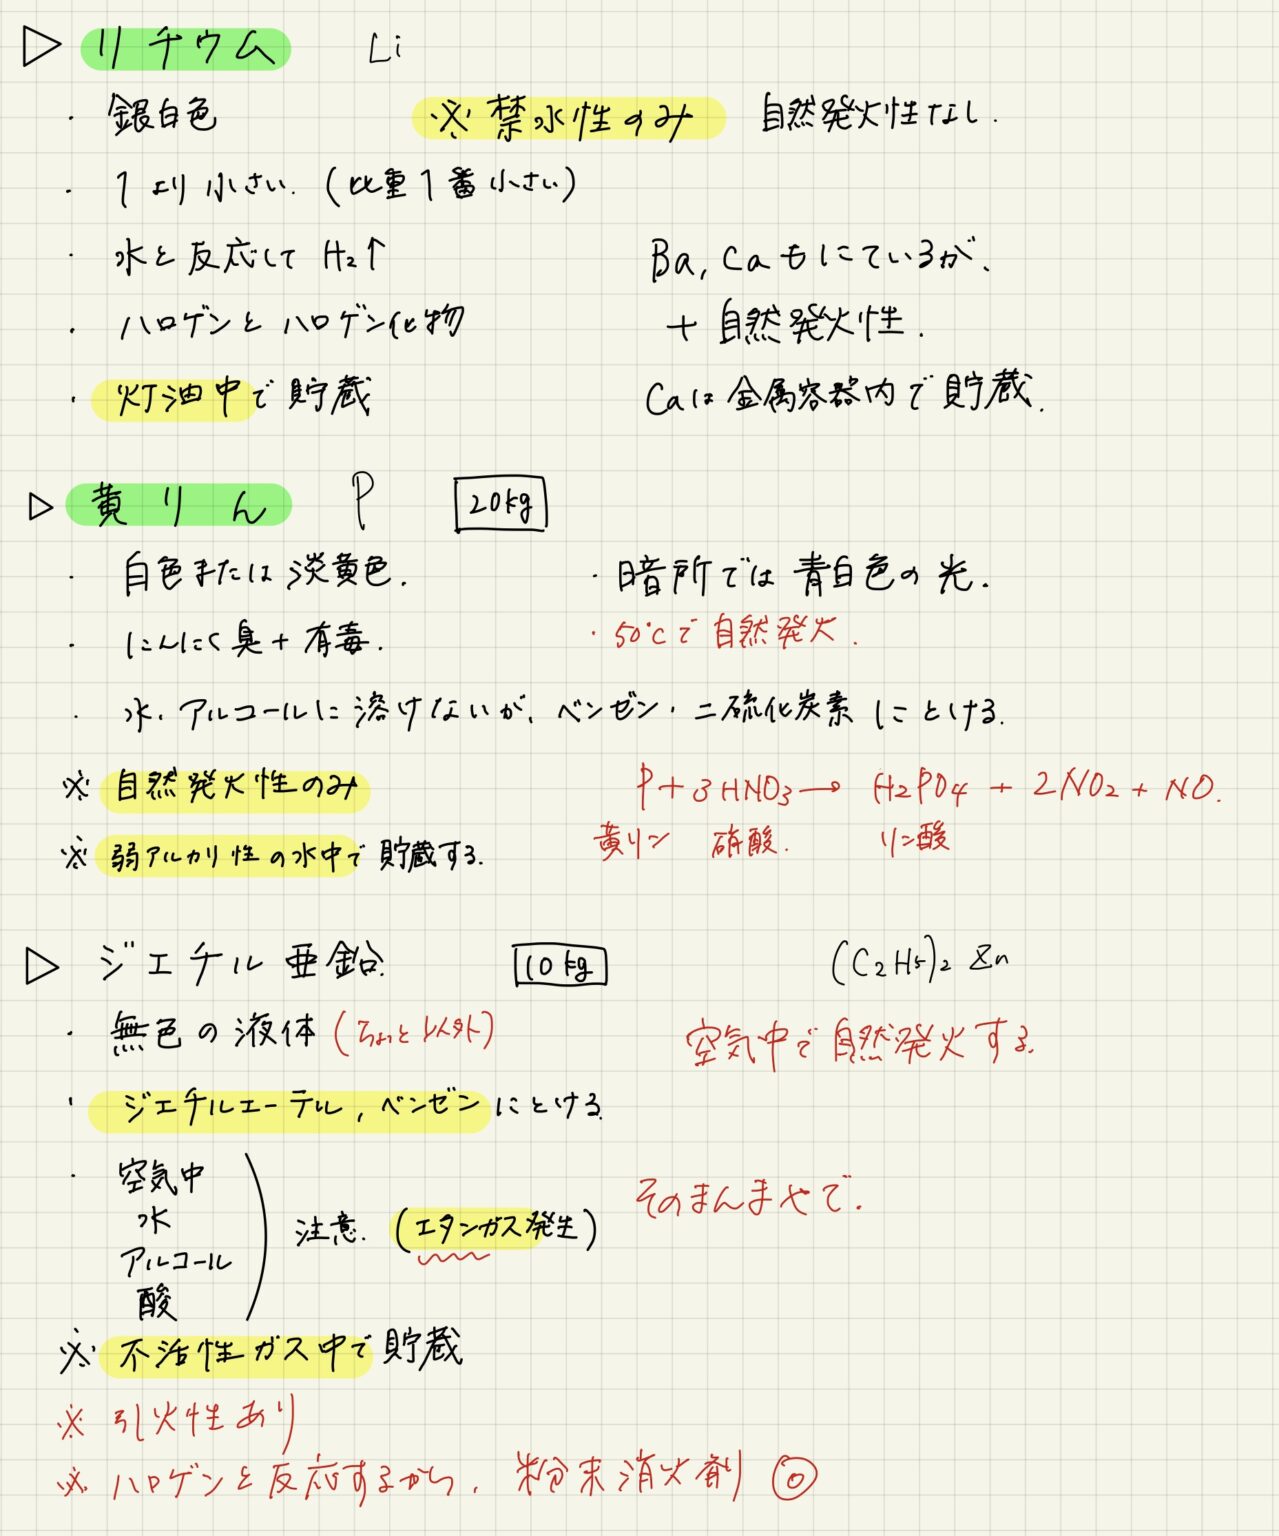 ▷ リチウム Li
・ 銀白色 ※ 禁水性のみ 自然発火性なし.
・ 1より小さい. (比重1番小さい)
・ 水と反応して H₂↑ Ba, Caもにているが、
・ ハロゲンとハロゲン化物 + 自然発火性.
・ 灯油中で貯蔵 Caは金属容器内で貯蔵.
▷ 黄りん P 20kg
・ 白色または淡黄色. ・暗所では青白色の光.
・ にんにく臭+有毒. ・50℃で自然発火.
・ 水、アルコールに溶けないが、ベンゼン・二硫化炭素にとける.
※ 自然発火性のみ P+3HNO₃→ H₂PO₄ + 2NO₂ + NO.
黄リン 硝酸. リン酸
※ 弱アルカリ性の水中で貯蔵する.
▷ ジエチル亜鉛 10kg (C₂H₅)₂Zn
・ 無色の液体 (ちょっと以外) 空気中で自然発火する.
・ ジエチルエーテル, ベンゼンにとける
・ 空気中
水
アルコール
酸
注意. (エタンガス発生) そのまんまやで.
※ 不活性ガス中で貯蔵
※ 引火性あり
※ ハロゲンと反応するから、粉末消火剤 ◎